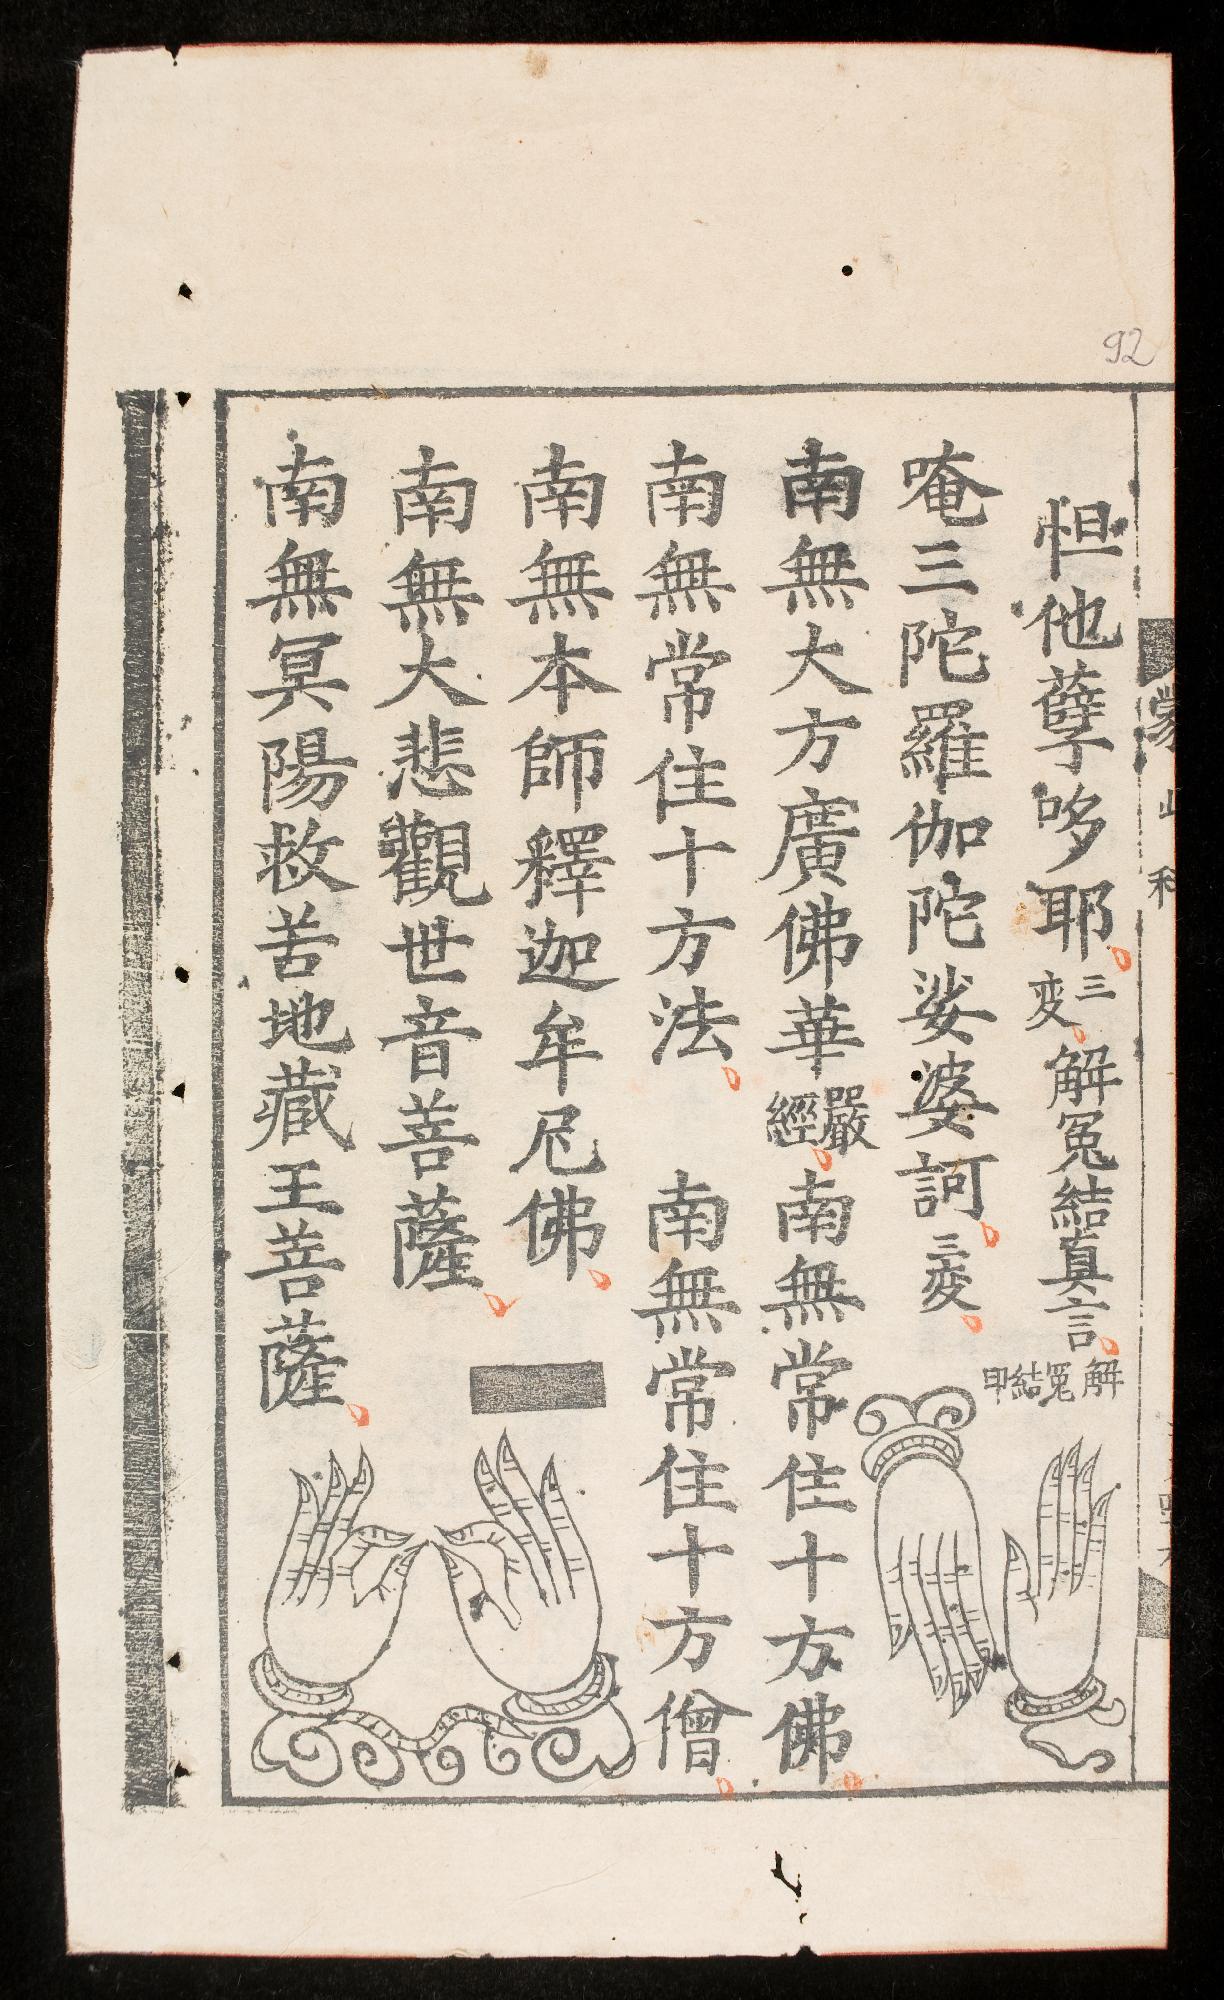 92
怛他孽哆耶三変解冤結真言
解冤結甲
唵三陀羅伽陀娑婆訶三変
南無大方廣佛華嚴經南無常住十方佛
南無常住十方法 南無常住十方僧
南無本師釋迦牟尼佛
南無大悲觀世音菩薩
南無冥陽救苦地藏王菩薩